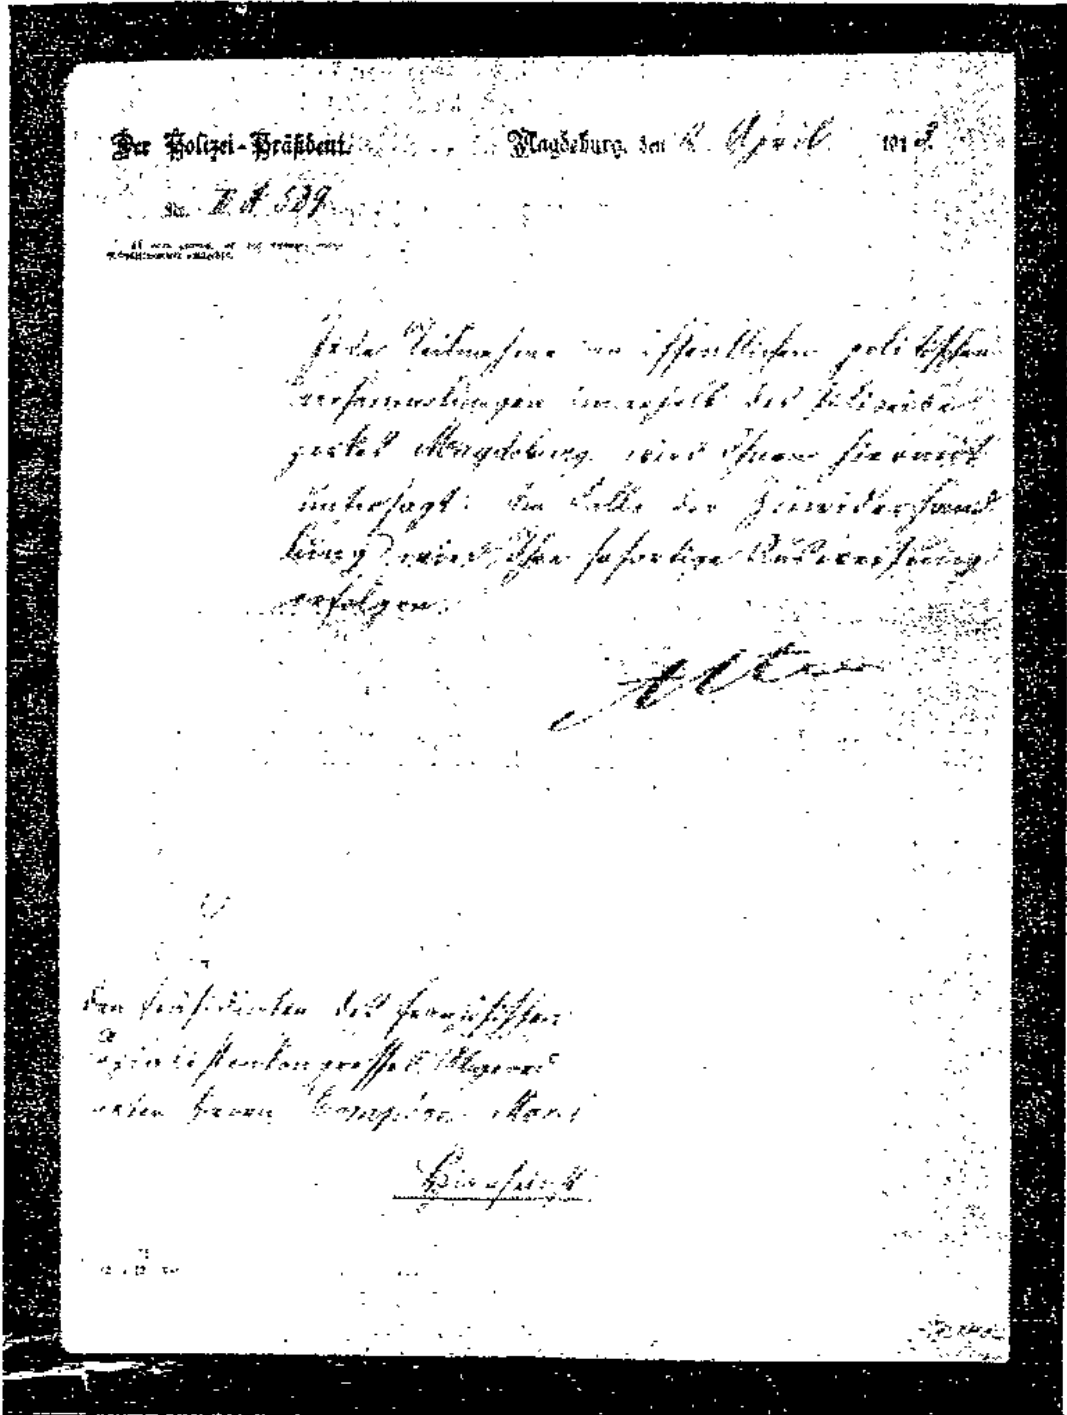 Der Polizei-Präsident. Magdeburg, den April 1913.
No. II A 539
Jede Teilnahme an öffentlichen politischen
Versammlungen innerhalb des Polizeibe-
zirkes Magdeburg wird Ihnen hiermit
untersagt. Im Falle der Zuwiderhand-
lung wird Ihre sofortige Ausweisung
erfolgen.
den Präsidenten des französischen
Sozialistenkongresses
Herrn Compère-Morel
Hierselbst